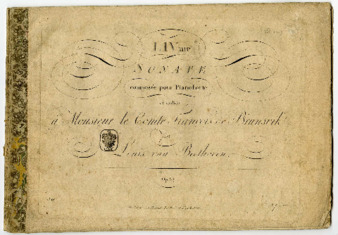 LIVme
SONATE
composée pour Pianoforte
et dediée
à Monsieur le Comte François de Brunsvik
par
Louis van Beethoven.